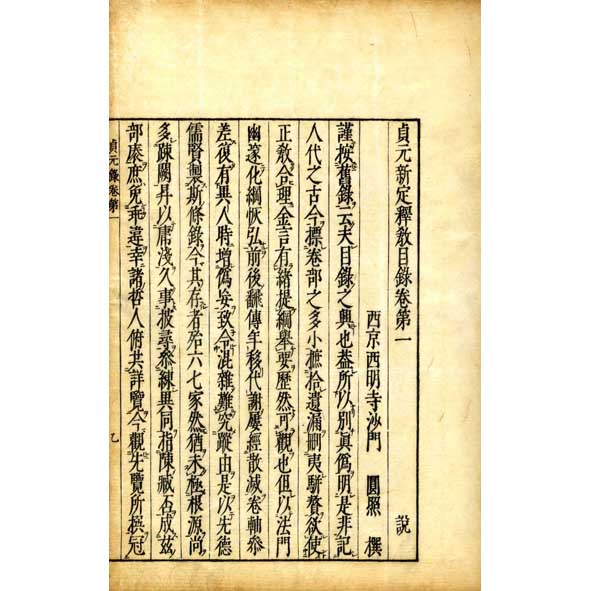 貞元新定釋教目錄卷第一
說
西京西明寺沙門 圓照 撰
謹按舊錄云夫目錄之興也蓋所以別真偽明是非記
人代之古今標卷部之多小摭拾遺漏刪夷駢贅欲使
正教合理金言有緒提綱舉要歷然可觀也但以法門
幽邃化綱恢弘前後翻傳年移代謝屢經散滅卷軸參
差復有異人時增偽妄致令混雜難究蹤由是以先德
儒賢製斯條錄今其在者殆六七家然猶未極根源尚
多疎闕昇以庸淺久事披尋參練異同指陳臧否成茲
部袠庶免乖違幸諸哲人俯共詳覽今觀先覽所撰冠
貞元錄卷第一
乙